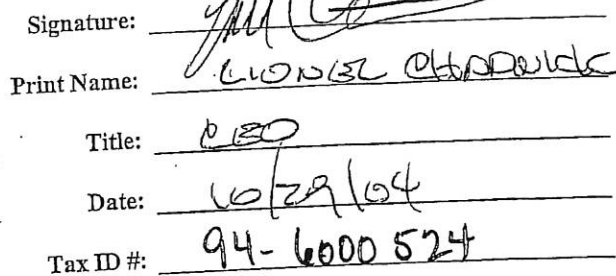 Signature:
Print Name: LIONEL CHADWICK
Title: CEO
Date: 10/29/04
Tax ID #: 94-6000524